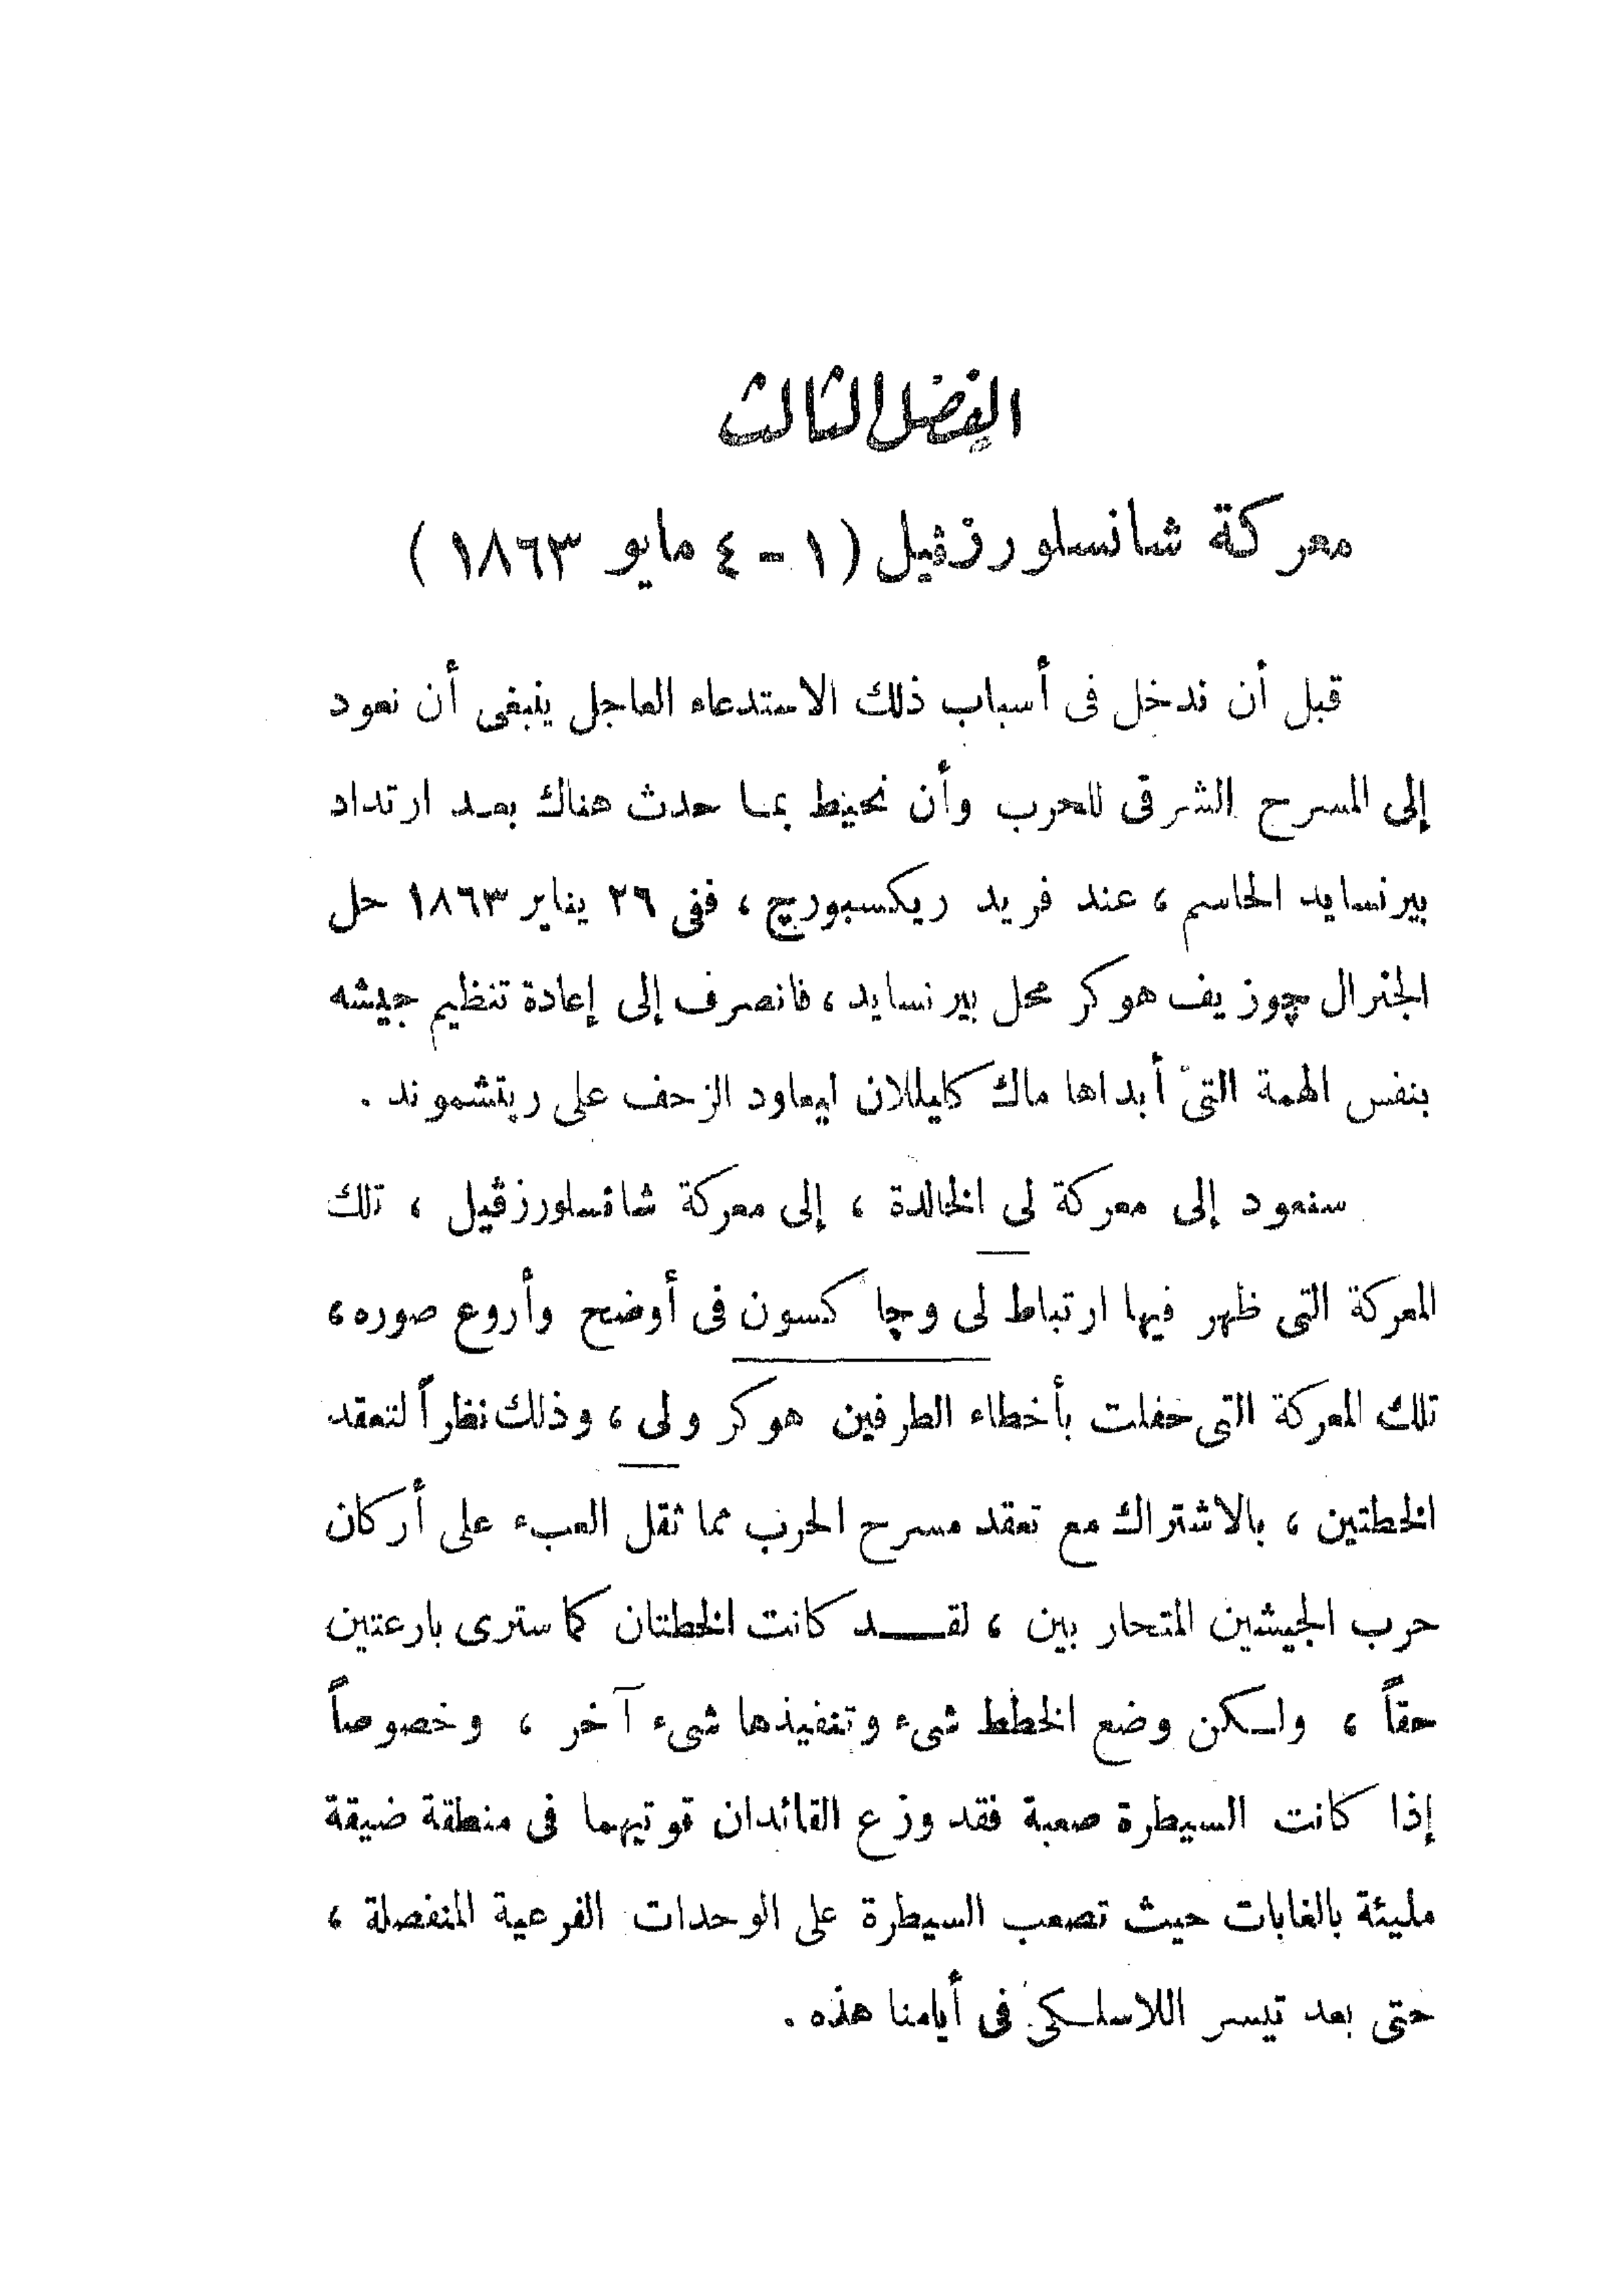 الفصل الثالث
معركة شانسلورزڤيل (١ - ٤ مايو ١٨٦٣)
قبل أن ندخل فى أسباب ذلك الاستدعاء العاجل ينبغى أن نعود
إلى المسرح الشرقى للحرب وأن نحيط بما حدث هناك بعد ارتداد
بيرنسايد الحاسم ، عند فريد ريكسبورچ ، ففى ٢٦ يناير ١٨٦٣ حل
الجنرال چوزيف هوكر محل بيرنسايد ، فانصرف إلى إعادة تنظيم جيشه
بنفس الهمة التى أبداها ماك كليللان ليعاود الزحف على ريتشموند .
سنعود إلى معركة لى الخالدة ، إلى معركة شانسلورزڤيل ، تلك
المعركة التى ظهر فيها ارتباط لى وچاكسون فى أوضح وأروع صوره ،
تلك المعركة التى حفلت بأخطاء الطرفين هوكر ولى ، وذلك نظراً لتعقد
الخطتين ، بالاشتراك مع تعقد مسرح الحرب مما ثقل العبء على أركان
حرب الجيشين المتحاربين ، لقد كانت الخطتان كما سترى بارعتين
حقاً ، ولكن وضع الخطط شىء وتنفيذها شىء آخر ، وخصوصاً
إذا كانت السيطرة صعبة فقد وزع القائدان قوتيهما فى منطقة ضيقة
مليئة بالغابات حيث تصعب السيطرة على الوحدات الفرعية المنفصلة ،
حتى بعد تيسر اللاسلكى فى أيامنا هذه .